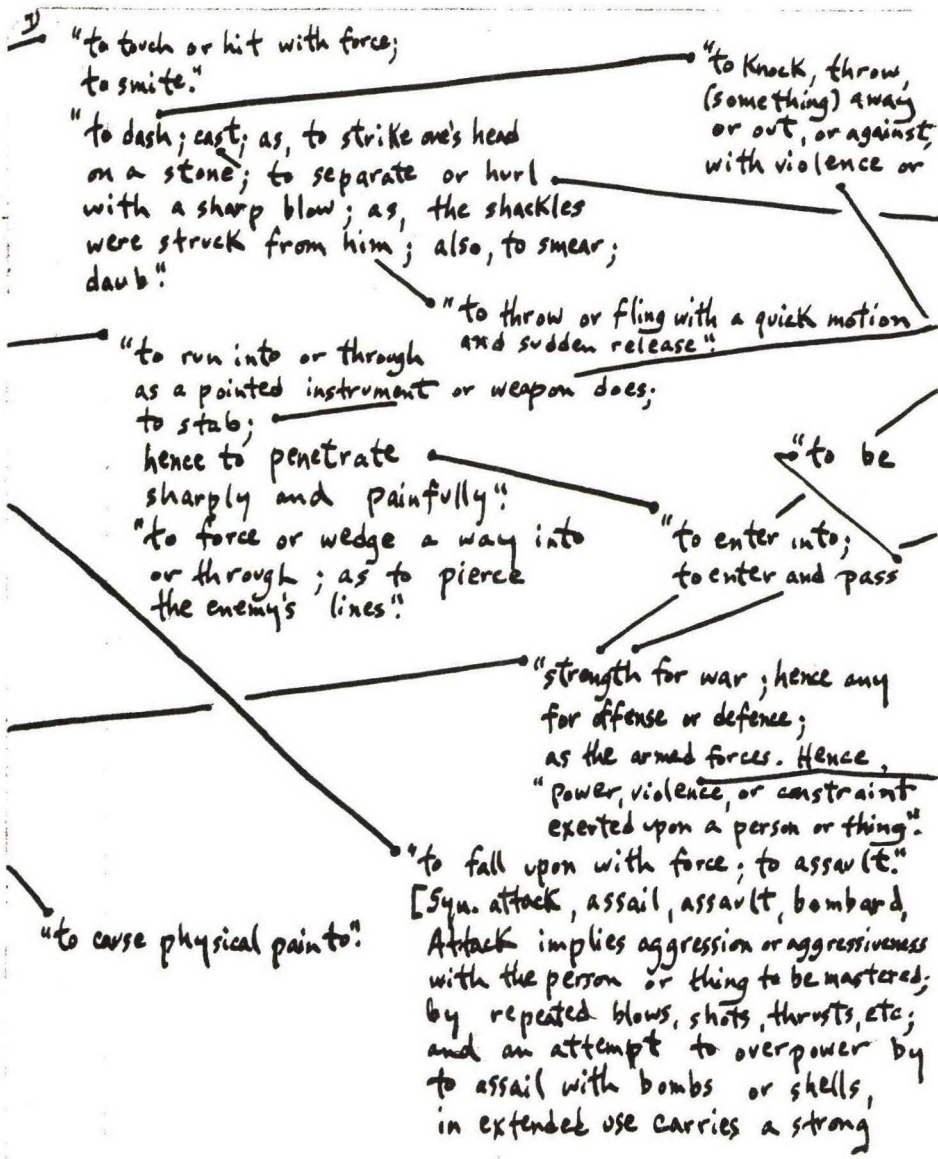 "to touch or hit with force;
to smite."
"to dash; cast; as, to strike one's head
on a stone; to separate or hurl
with a sharp blow; as, the shackles
were struck from him; also, to smear;
daub."
"to knock, throw,
(something) away
or out, or against,
with violence or
"to throw or fling with a quick motion
and sudden release".
"to run into or through
as a pointed instrument or weapon does;
to stab;
hence to penetrate
sharply and painfully".
"to force or wedge a way into
or through; as to pierce
the enemy's lines".
"to be
"to enter into;
to enter and pass
"strength for war; hence any
for offense or defence;
as the armed forces. Hence,
"power, violence, or constraint
exerted upon a person or thing".
"to fall upon with force; to assault."
[Syn. attack, assail, assault, bombard,
Attack implies aggression or aggressiveness
with the person or thing to be mastered;
by repeated blows, shots, thrusts, etc;
and an attempt to overpower by
to assail with bombs or shells,
in extended use carries a strong
"to cause physical pain to".